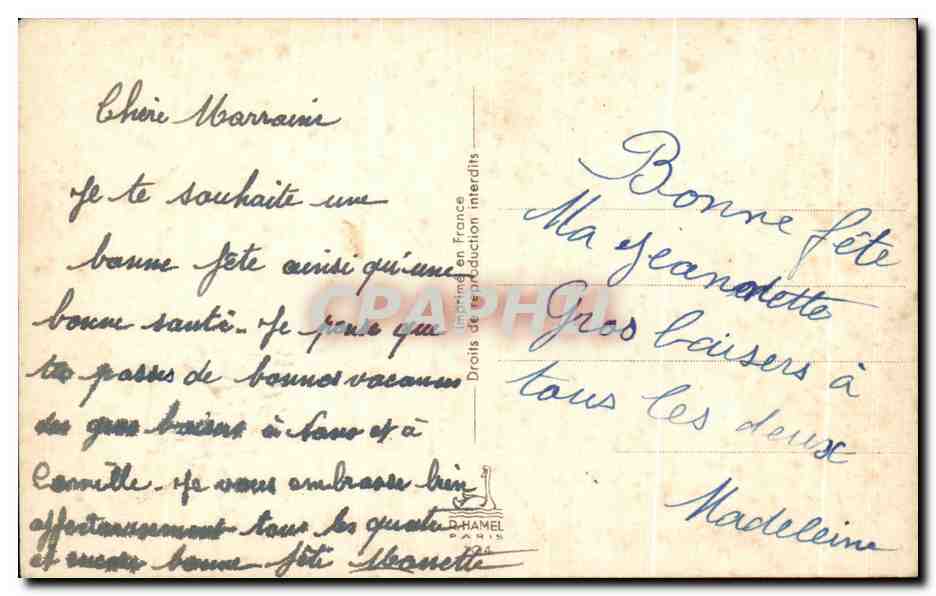 Chère Marraine
Je te souhaite une
bonne fête ainsi qu'une
bonne santé. Je pense que
tu passes de bonnes vacances
des gros baisers à et à
Camille. Je vous embrasse bien
affectueusement tous les quatre
et encore bonne fête
Imprimé en France
Droits de reproduction interdits
CPAPHIL
R. HAMEL
PARIS
Bonne fête
Ma Jeannette
Gros baisers à
tous les deux
Madeleine